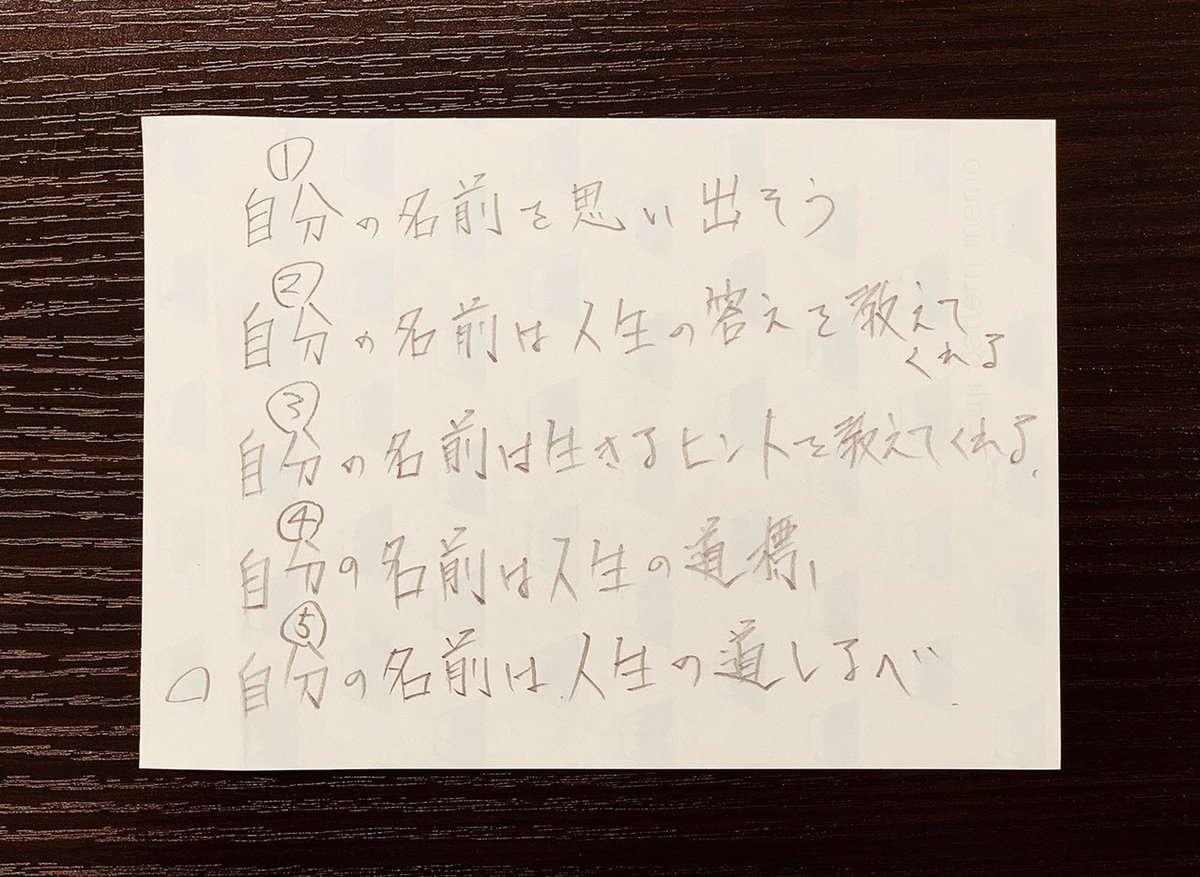 ①
自分の名前を思い出そう
②
自分の名前は人生の答えを教えて
くれる
③
自分の名前は生きるヒントを教えてくれる、
④
自分の名前は人生の道標、
⑤
○自分の名前は人生の道しるべ